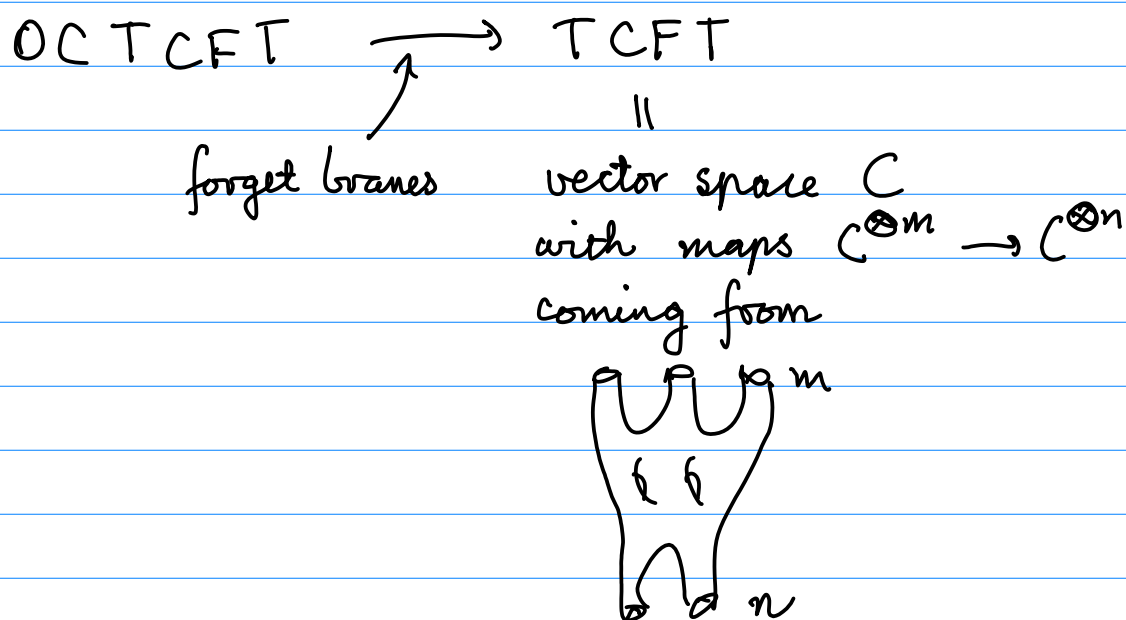 OCTCFT → TCFT
=
forget branes vector space C
with maps C^{⊗m} → C^{⊗n}
coming from
m
n